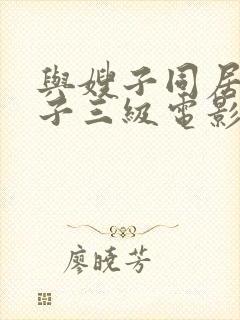 與嫂子同居
子三級電影
廖曉芳